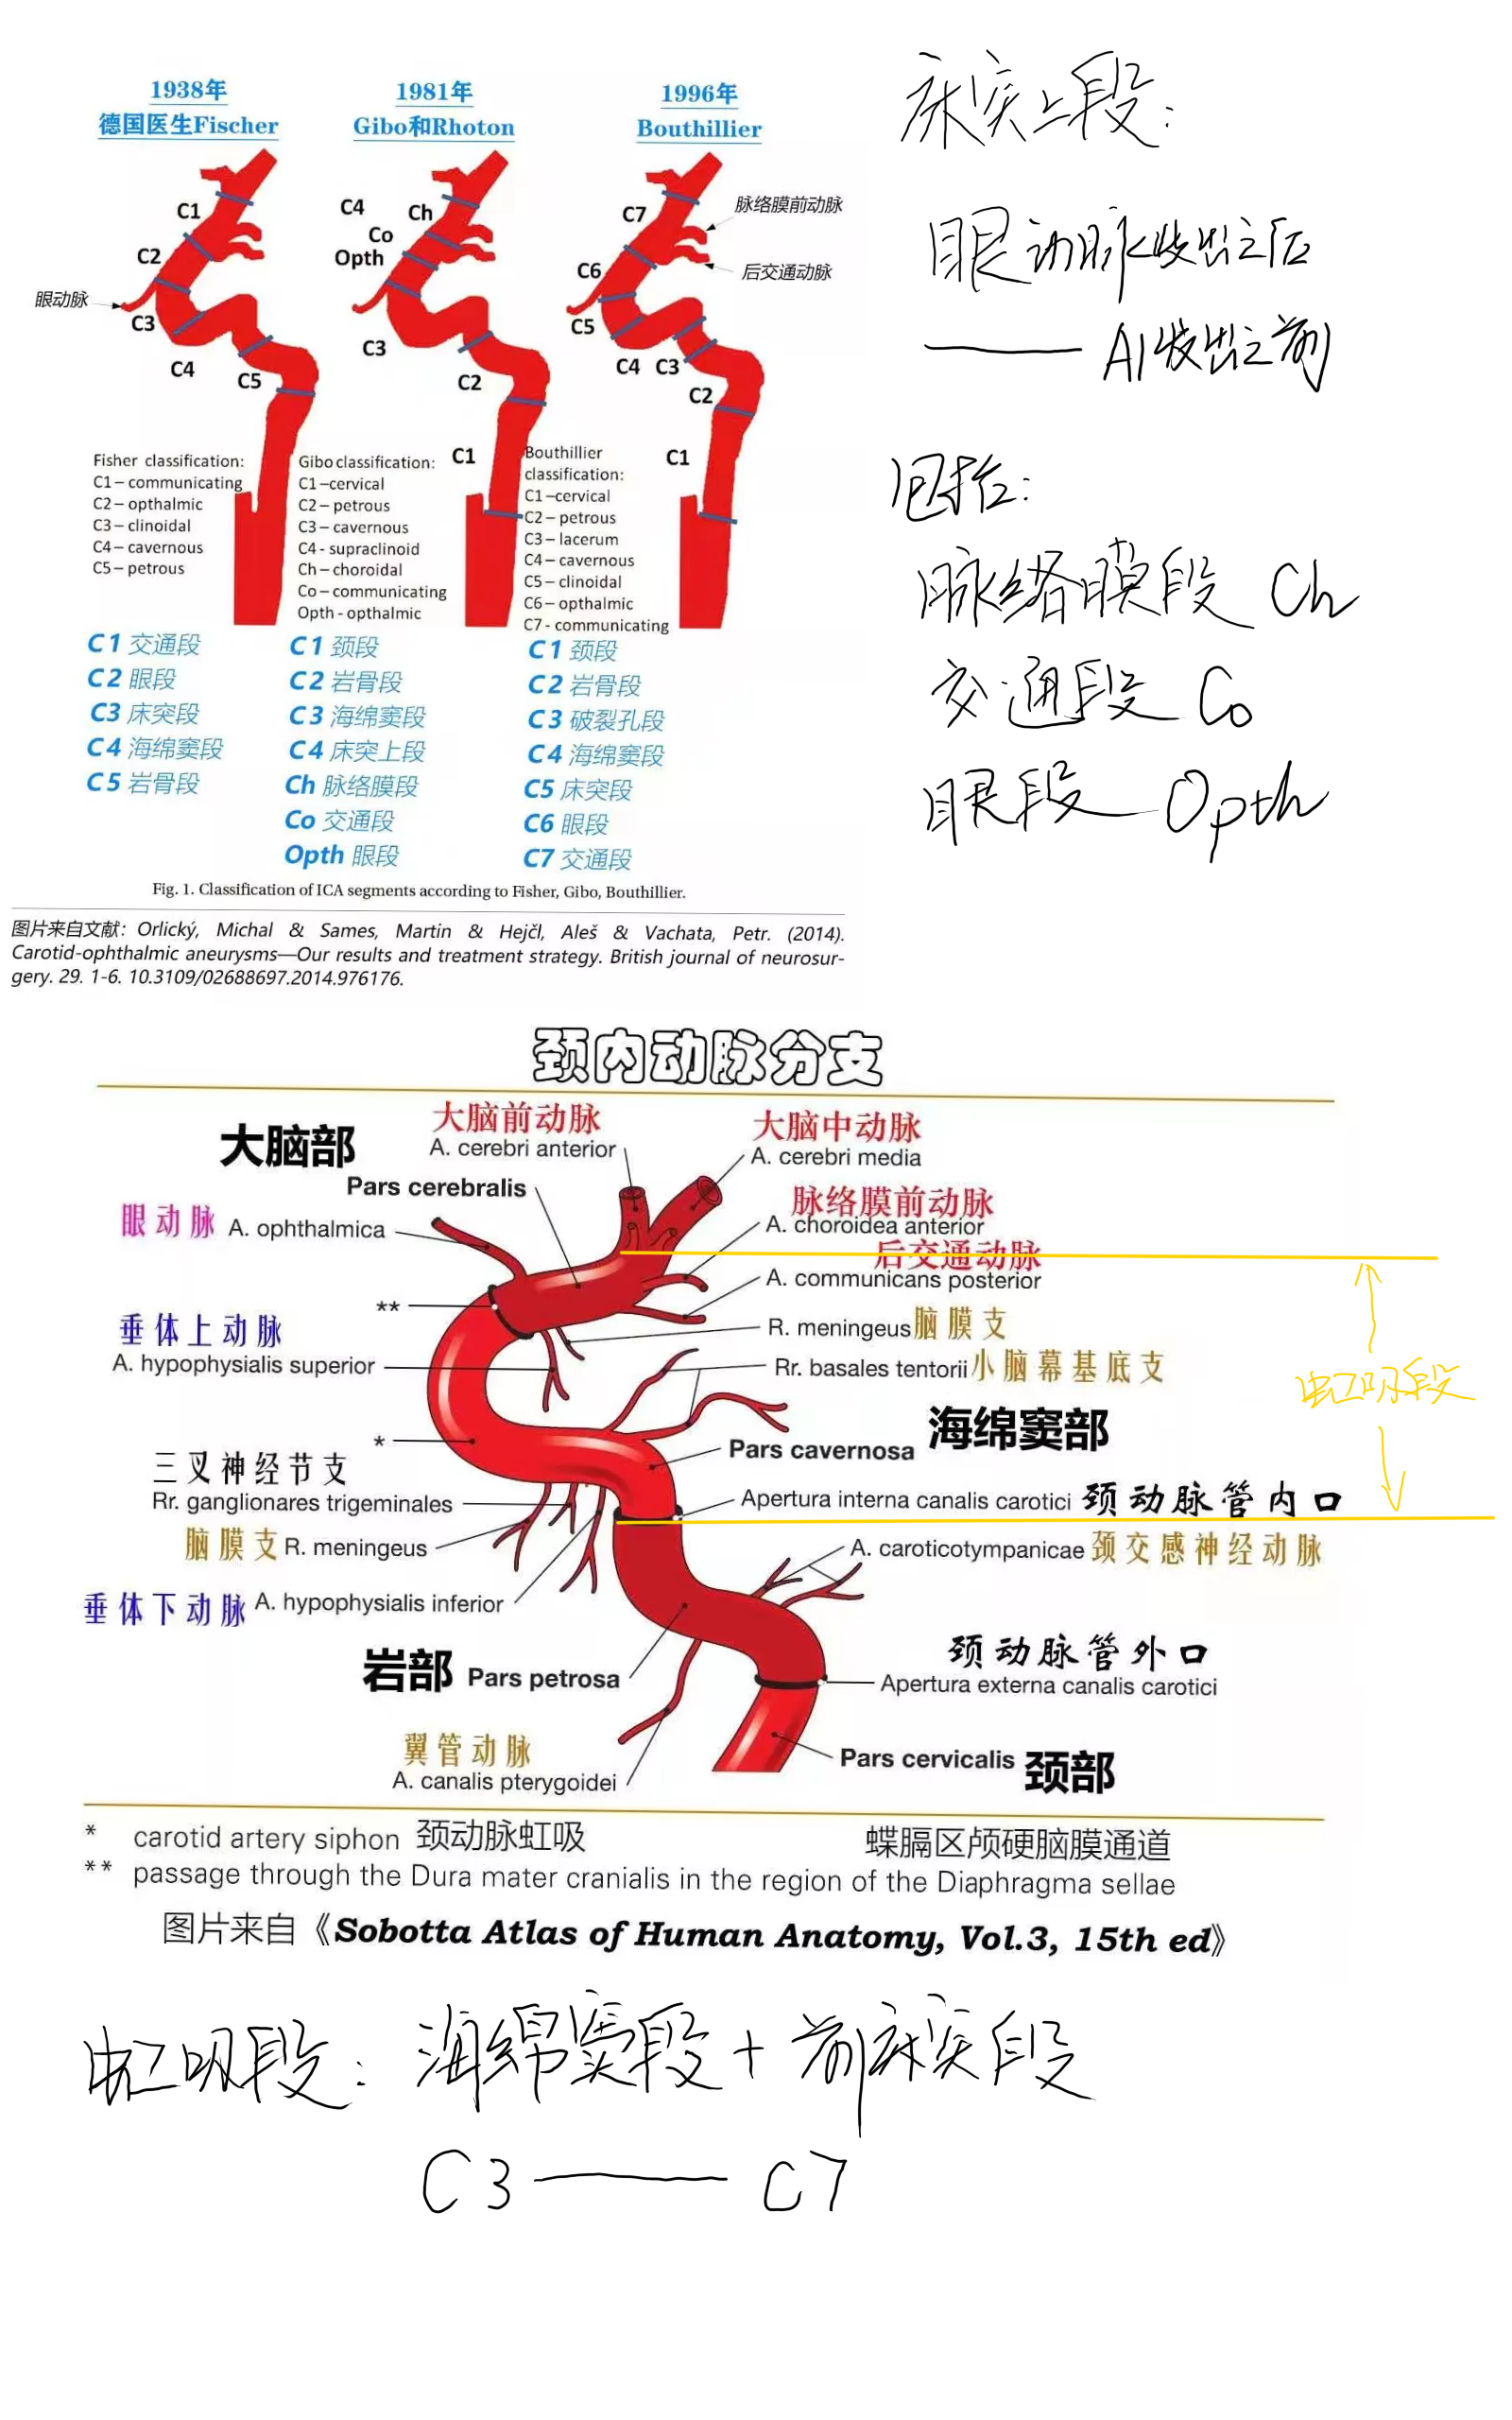 1938年
德国医生Fischer
1981年
Gibo和Rhoton
1996年
Bouthillier
C1
C2
眼动脉
C3
C4
C5
C4
Ch
Co
Opth
C3
C2
C1
C7
脉络膜前动脉
C6
后交通动脉
C5
C4
C3
C2
C1
Fisher classification:
C1– communicating
C2– opthalmic
C3– clinoidal
C4– cavernous
C5– petrous
Gibo classification:
C1–cervical
C2– petrous
C3– cavernous
C4 - supraclinoid
Ch– choroidal
Co– communicating
Opth - opthalmic
Bouthillier
classification:
C1–cervical
C2– petrous
C3– lacerum
C4– cavernous
C5– clinoidal
C6– opthalmic
C7- communicating
C1 交通段
C2 眼段
C3 床突段
C4 海绵窦段
C5 岩骨段
C1 颈段
C2 岩骨段
C3 海绵窦段
C4 床突上段
Ch 脉络膜段
Co 交通段
Opth 眼段
C1 颈段
C2 岩骨段
C3 破裂孔段
C4 海绵窦段
C5 床突段
C6 眼段
C7 交通段
Fig. 1. Classification of ICA segments according to Fisher, Gibo, Bouthillier.
图片来自文献：Orlický, Michal & Sames, Martin & Hejčl, Aleš & Vachata, Petr. (2014).
Carotid-ophthalmic aneurysms—Our results and treatment strategy. British journal of neurosur-
gery. 29. 1-6. 10.3109/02688697.2014.976176.
床突上段：
眼动脉发出之后
—— A1发出之前
包括：
脉络膜段 Ch
交通段 Co
眼段 Opth
颈内动脉分支
大脑部
Pars cerebralis
大脑前动脉
A. cerebri anterior
大脑中动脉
A. cerebri media
眼动脉 A. ophthalmica
脉络膜前动脉
A. choroidea anterior
后交通动脉
A. communicans posterior
**
R. meningeus脑膜支
垂体上动脉
A. hypophysialis superior
Rr. basales tentorii小脑幕基底支
虹吸段
*
Pars cavernosa 海绵窦部
三叉神经节支
Rr. ganglionares trigeminales
Apertura interna canalis carotici 颈动脉管内口
脑膜支R. meningeus
A. caroticotympanicae 颈交感神经动脉
垂体下动脉 A. hypophysialis inferior
岩部 Pars petrosa
颈动脉管外口
Apertura externa canalis carotici
翼管动脉
A. canalis pterygoidei
Pars cervicalis 颈部
* carotid artery siphon 颈动脉虹吸 蝶膈区颅硬脑膜通道
** passage through the Dura mater cranialis in the region of the Diaphragma sellae
图片来自《Sobotta Atlas of Human Anatomy, Vol.3, 15th ed》
虹吸段：海绵窦段+前床突段
C3 —— C7